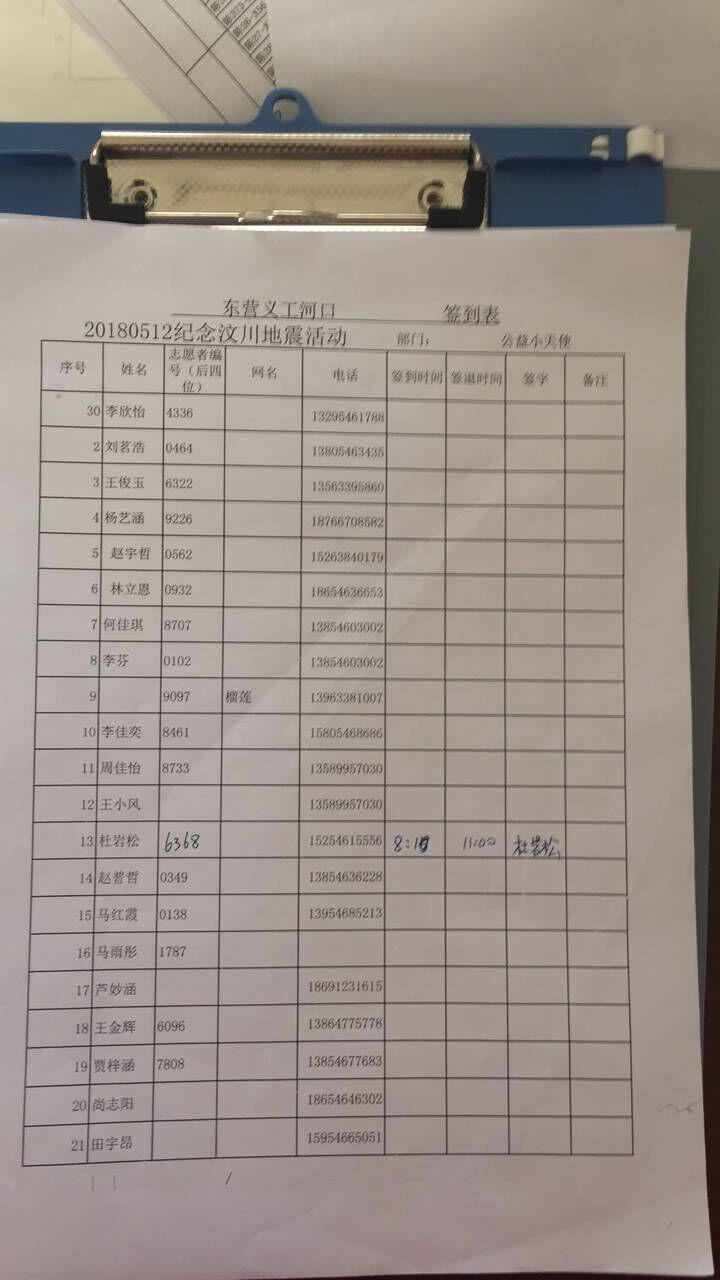 东营义工河口 签到表
20180512纪念汶川地震活动 部门: 公益小天使
序号 姓名 志愿者编号（后四位） 网名 电话 签到时间 签退时间 签字 备注
30 李欣怡 4336 13295461788
2 刘茗浩 0464 13805463435
3 王俊玉 6322 13563395860
4 杨艺涵 9226 18766708582
5 赵宇哲 0562 15263840179
6 林立恩 0932 18654636653
7 何佳琪 8707 13854603002
8 李芬 0102 13854603002
9 9097 榴莲 13963381007
10 李佳奕 8461 15805468686
11 周佳怡 8733 13589957030
12 王小风 13589957030
13 杜岩松 6368 15254615556 11:00 杜岩松
14 赵普哲 0349 13854636228
15 马红霞 0138 13954685213
16 马雨彤 1787
17 芦妙涵 18691231615
18 王金辉 6096 13864775778
19 贾梓涵 7808 13854677683
20 尚志阳 18654646302
21 田宇昂 15954665051